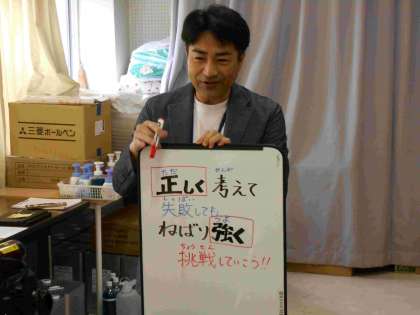 三菱ボールペン
ただ かんが
正しく 考えて
しっぱい
失敗しても
つよ
ねばり強く
ちょうせん
挑戦していこう!!